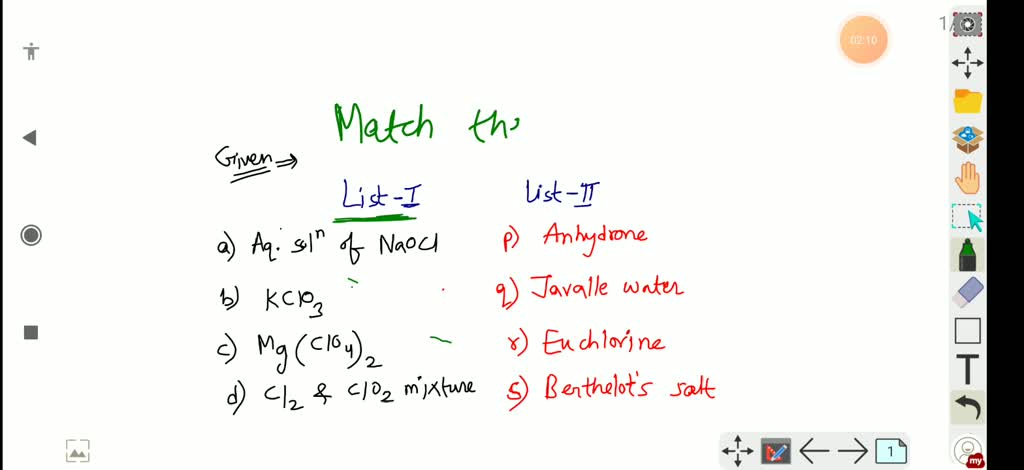 1/
02:10
Match th
Given ⇒
List-I List-II
a) Aq. solⁿ of NaOCl p) Anhydrone
b) KClO₃ q) Javalle water
c) Mg(ClO₄)₂ r) Euchlorine
d) Cl₂ & ClO₂ mixture s) Berthelot's salt
T
1
my